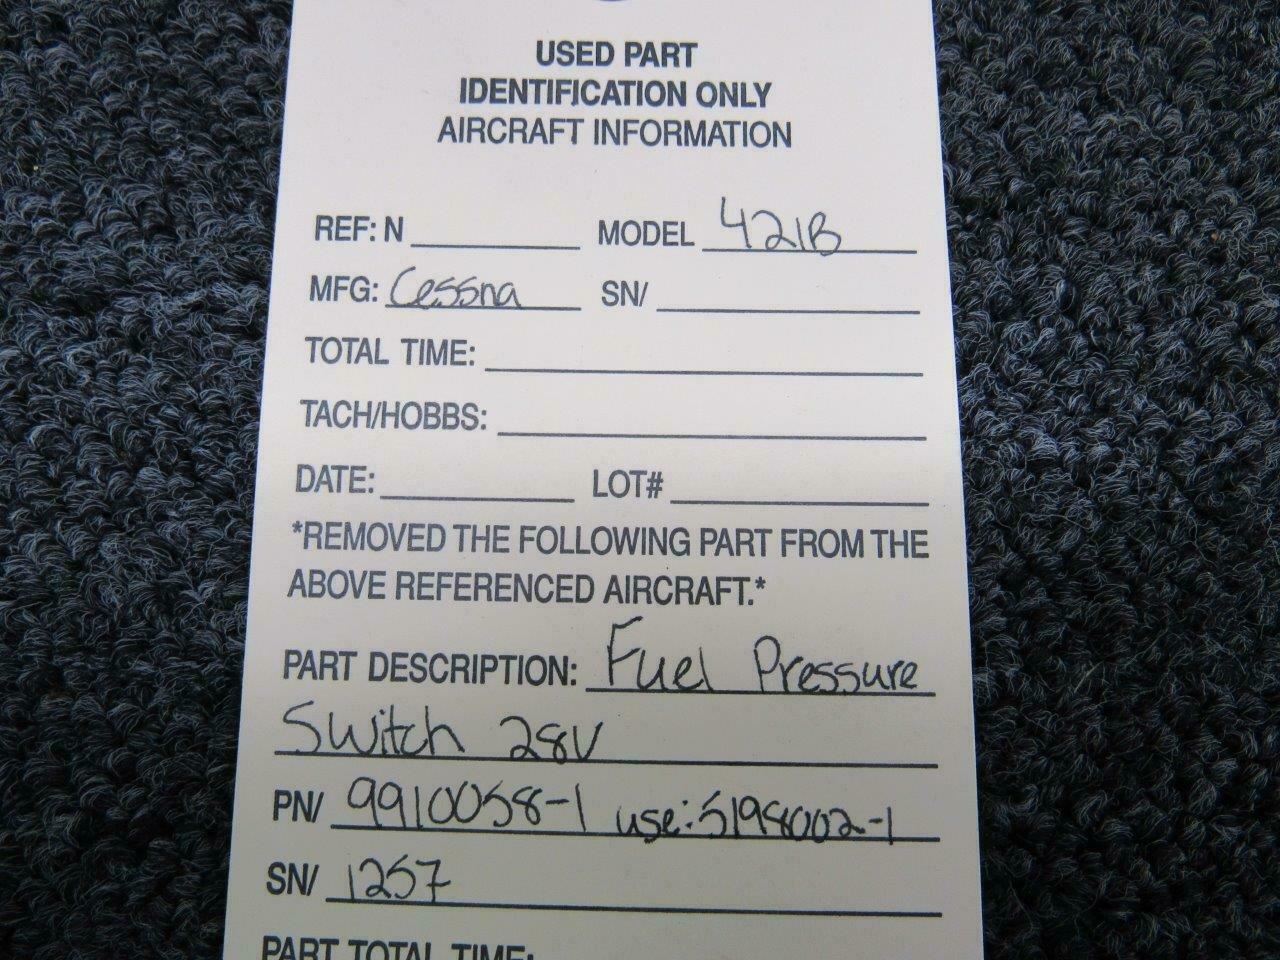 USED PART
IDENTIFICATION ONLY
AIRCRAFT INFORMATION
REF: N MODEL 421B
MFG: Cessna SN/
TOTAL TIME:
TACH/HOBBS:
DATE: LOT#
*REMOVED THE FOLLOWING PART FROM THE
ABOVE REFERENCED AIRCRAFT.*
PART DESCRIPTION: Fuel Pressure
Switch 28V
PN/ 9910058-1 use: 5198002-1
SN/ 1257
PART TOTAL TIME: